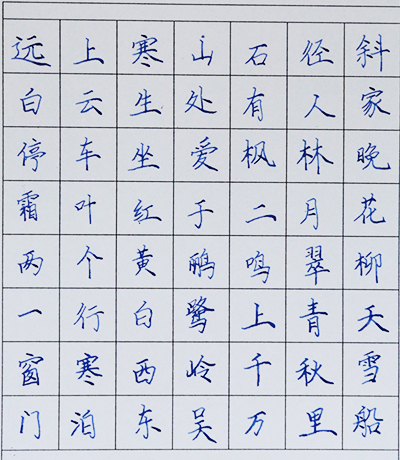 远上寒山石径斜
白云生处有人家
停车坐爱枫林晚
霜叶红于二月花
两个黄鹂鸣翠柳
一行白鹭上青天
窗寒西岭千秋雪
门泊东吴万里船